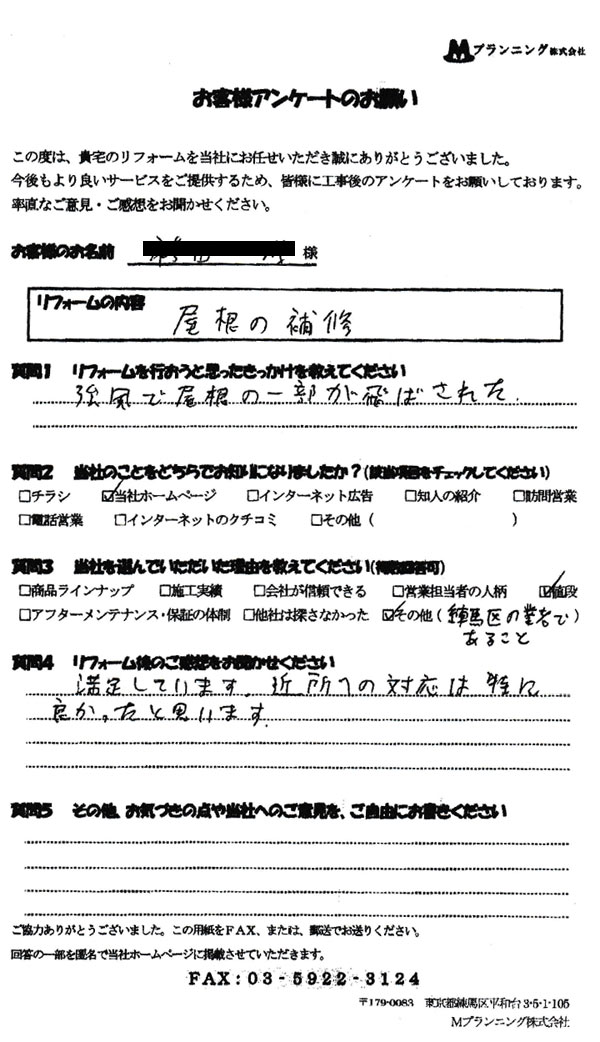 Mプランニング株式会社
お客様アンケートのお願い
この度は、貴宅のリフォームを当社にお任せいただき誠にありがとうございました。
今後もより良いサービスをご提供するため、皆様に工事後のアンケートをお願いしております。
率直なご意見・ご感想をお聞かせください。
お客様のお名前 様
リフォームの内容
屋根の補修
質問1 リフォームを行おうと思ったきっかけを教えてください
強風で屋根の一部が飛ばされた.
質問2 当社のことをどちらでお知りになりましたか？(該当項目をチェックしてください)
□チラシ ☑当社ホームページ □インターネット広告 □知人の紹介 □訪問営業
□電話営業 □インターネットのクチコミ □その他（ ）
質問3 当社を選んでいただいた理由を教えてください(複数回答可)
□商品ラインナップ □施工実績 □会社が信頼できる □営業担当者の人柄 ☑値段
□アフターメンテナンス・保証の体制 □他社は探さなかった ☑その他（練馬区の業者で）
あること
質問4 リフォーム後のご感想をお聞かせください
満足しています. 近所への対応は特に
良かったと思います.
質問5 その他、お気づきの点や当社へのご意見を、ご自由にお書きください
ご協力ありがとうございました。この用紙をFAX、または、郵送でお送りください。
回答の一部を匿名で当社ホームページに掲載させていただきます。
FAX:03-5922-3124
〒179-0083 東京都練馬区平和台3-5-1-105
Mプランニング株式会社